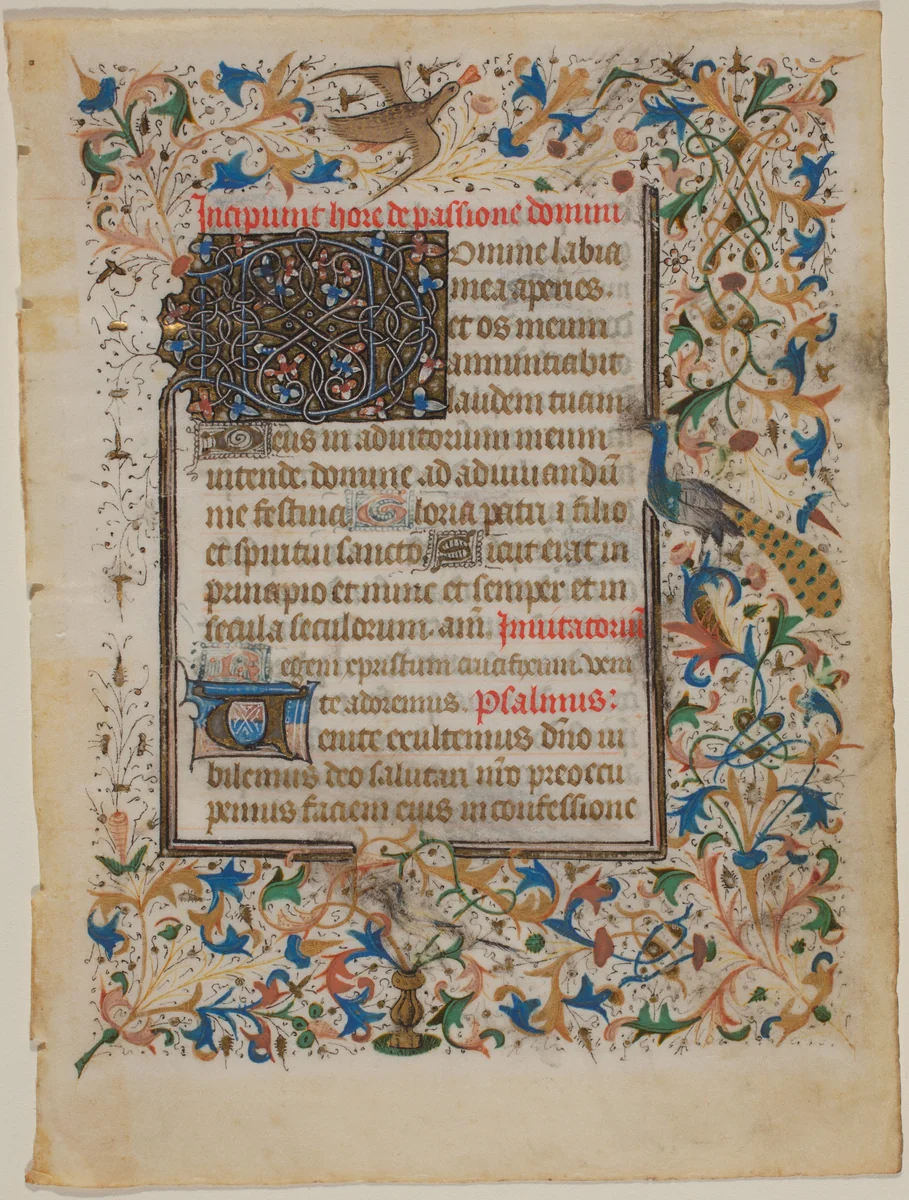 Incipiunt hore de passione domini
Domine labia
mea aperies.
et os meum
annuntiabit
laudem tuam
Deus in adiutorium meum
intende. domine ad adiuuandū
me festina Gloria patri i filio
et spiritui sancto Sicut erat in
principio et nunc et semper et in
secula seculorum. am̄. Inuitatoriū
Regem cpristum crucifixum. Veni
te adoremus. Psalmus:
Uenite exultemus dn̄o iu
bilemus deo salutari nr̄o preoccu
pemus faciem eius in confessione